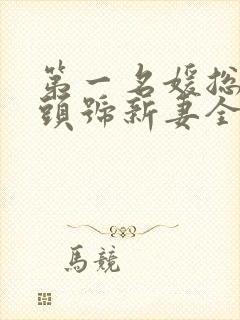 第一名媛总
頭號新妻全
馬競